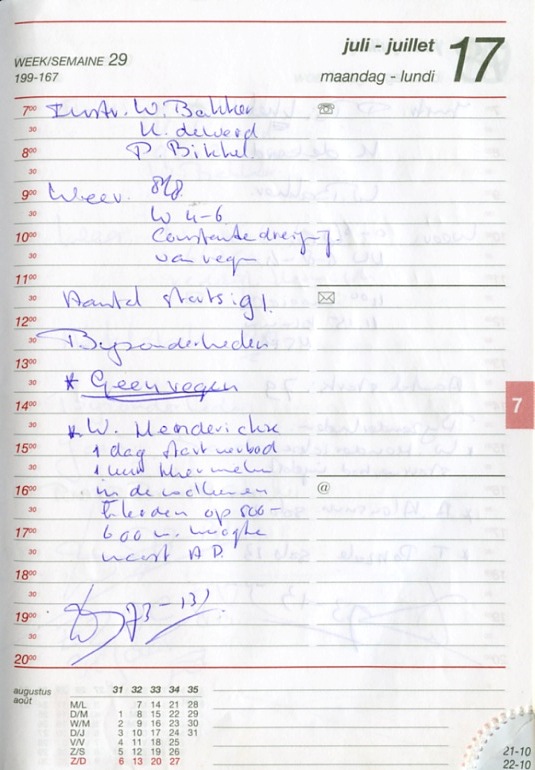 WEEK/SEMAINE 29
199-167
juli - juillet
maandag - lundi
17
7⁰⁰ Instr. W. Bakker
30 K. deWerd
8⁰⁰ P. Bikkel
30
9⁰⁰ Weer. 8/8
30 W 4-6
10⁰⁰ Constante dreiging
30 van regen
11⁰⁰
30 Aantal starts: 91.
12⁰⁰
30 Bijzonderheden
13⁰⁰
30 * Geen regen
14⁰⁰
30 * W. Henderickse
15⁰⁰ 1 dag start verbod
30 1 uur thermelen
16⁰⁰ in de
30 op 500-
17⁰⁰ 600 m. hoogte
30 naast AD.
18⁰⁰
30
19⁰⁰ 73-13)
30
20⁰⁰
@
7
augustus
août
31 32 33 34 35
M/L 7 14 21 28
D/M 1 8 15 22 29
W/M 2 9 16 23 30
D/J 3 10 17 24 31
V/V 4 11 18 25
Z/S 5 12 19 26
Z/D 6 13 20 27
21-10
22-10